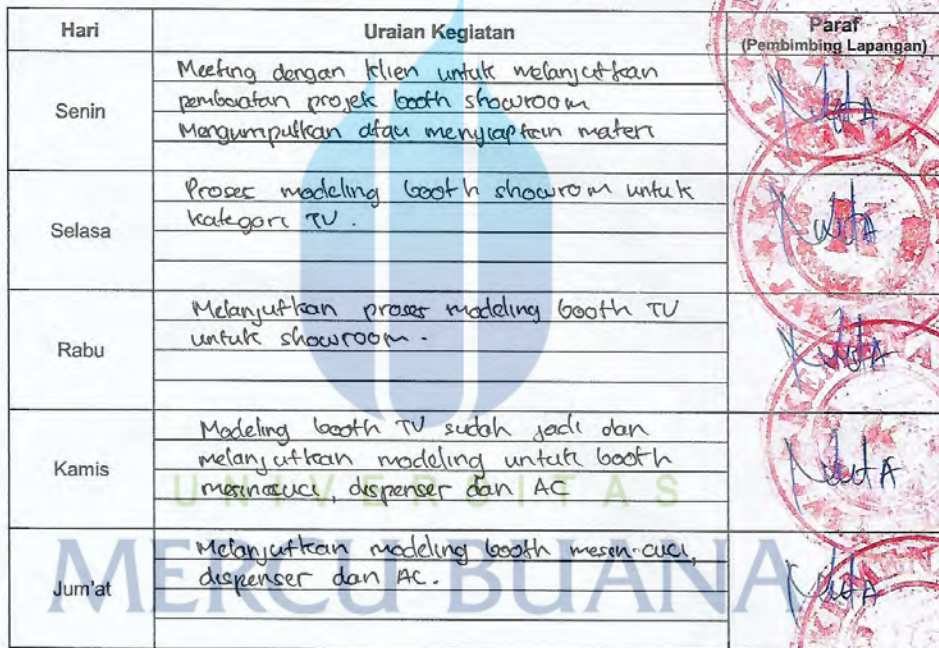 Hari
Uraian Kegiatan
Paraf
(Pembimbing Lapangan)
Senin
Meeting dengan klien untuk melanjutkan
pembuatan projek booth showroom
Mengumpulkan atau menyiapkan materi
Selasa
Proses modeling booth showrom untuk
kategori TV.
Rabu
Melanjutkan proses modeling booth TV
untuk showroom.
Kamis
Modeling booth TV sudah jadi dan
melanjutkan modeling untuk booth
mesincuci, dispenser dan AC
Jum'at
Melanjutkan modeling booth mesin cuci,
dispenser dan AC.
UNIVERSITAS
MERCU BUANA